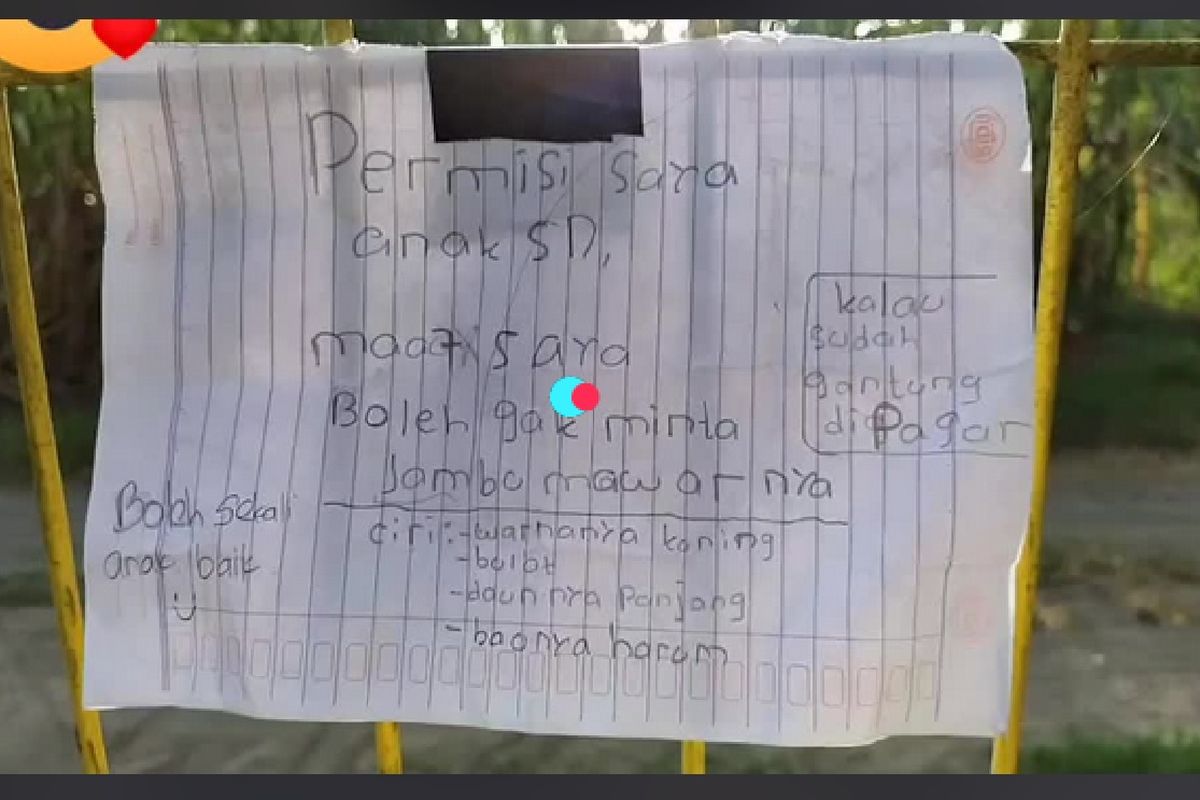 Permisi saya
anak SD,
maaf saya
Boleh gak minta
Jambu mawar nya
ciri:-warnanya koning
-bulat
-daun nya Panjang
-baonya harum
kalau
sudah
gantung
diPagar
Boleh sekali
anak baik